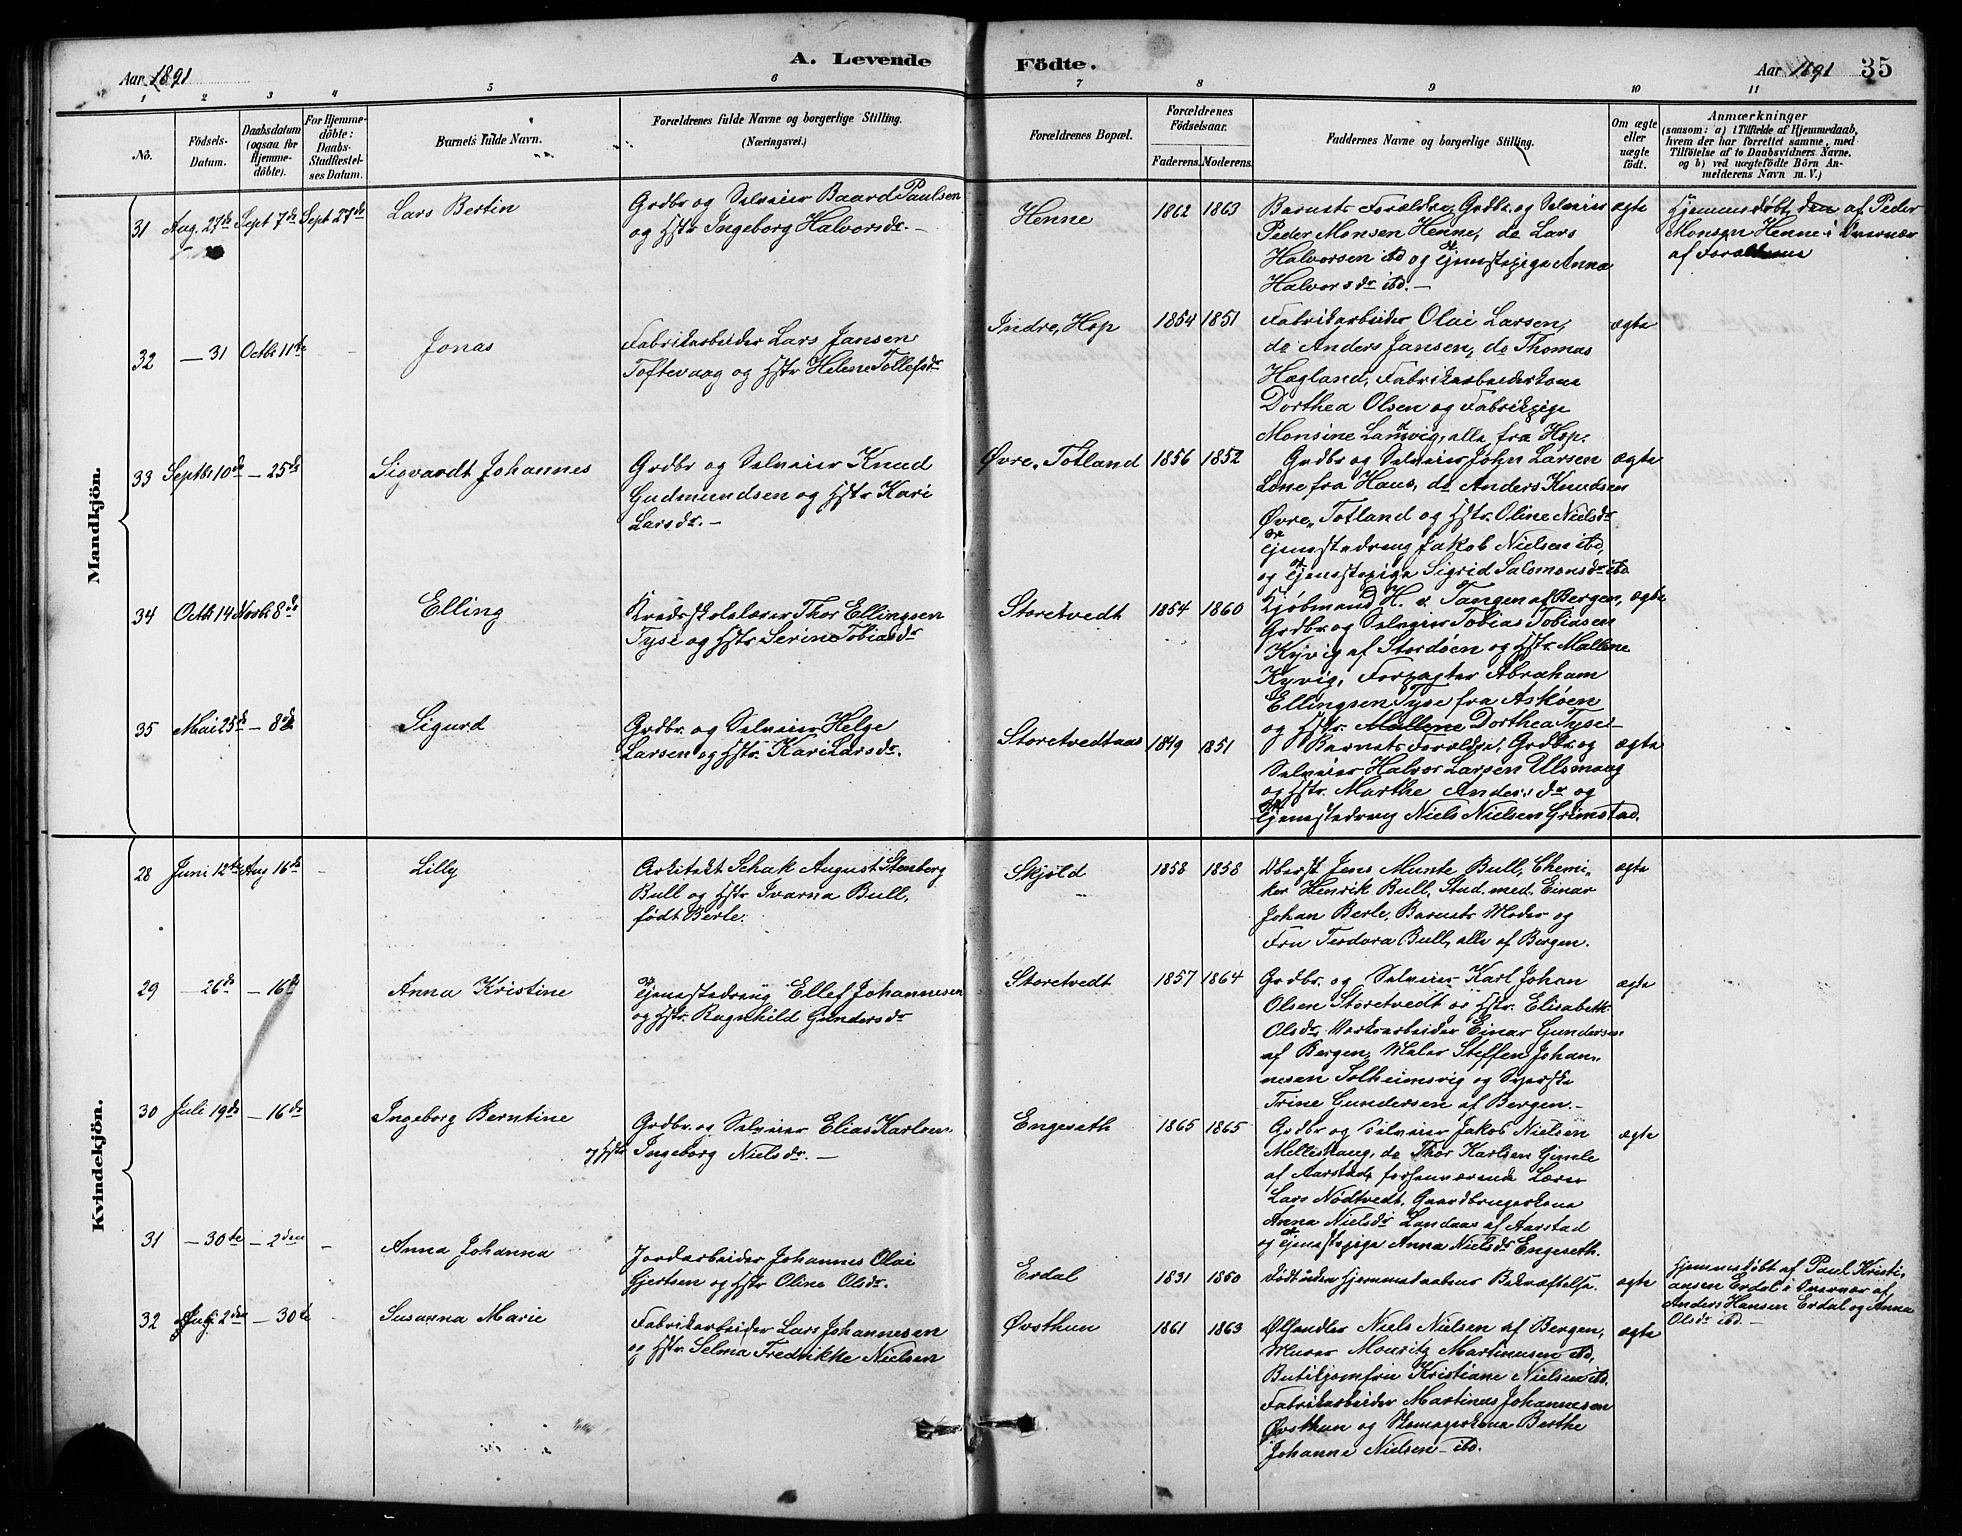 Aar 1891
A. Levende
Födte.
Aar 1891
35
1 2 3 4 5 6 7 8 9 10 11
No.
Födsels-
Datum.
Daabsdatum
(ogsaa for
Hjemme-
döbte).
For Hjemme-
döbte:
Daabs-
Stadfæstel-
ses Datum.
Barnets fulde Navn.
Forældrenes fulde Navne og borgerlige Stilling.
(Næringsvei.)
Forældrenes Bopæl.
Forældrenes
Födselsaar.
Faderens. Moderens.
Faddernes Navne og borgerlige Stilling.
Om ægte
eller
uægte
födt.
Anmærkninger
(saasom: a) i Tilfælde af Hjemmedaab,
hvem der har forrettet samme, med
Tilföielse af to Daabsvidners Navne,
og b) ved uægtefödte Börn An-
melderens Navn m. V.)
Mandkjön.
31 Aug. 27de Sept 7de Sept 27de Lars Bertin
Grdbr og Selveier Baard Paulsen
og Hstr Ingeborg Halvorsdr. —
Henne 1862 1863
Barnets Forældre, Grdbr. og Selveier
Peder Monsen Henne, do Lars
Halvorsen ibd og Tjenestepige Anna
Halvorsdr ibd. —
ægte
Hjemmedøbt den af Peder
Monsen Henne i Overvær
af Forældrene
32 — 31 Octbr 11te Jonas
Fabrikarbeider Lars Jansen
Toftevaag og Hstr Helene Tollefsdr
Indre, Hop 1854 1851
Fabrikarbeider Olai Larsen,
do Anders Jansen, do Thomas
Hagland, Fabrikarbeiderkone
Dorthea Olsen og Fabrikpige
Monsine Lamvig, alle fra Hop.
ægte
33 Septbr 10de — 25de Sigvardt Johannes
Grdbr og Selveier Knud
Gudmundsen og Hstr Kari
Larsdr. —
Øvre, Totland 1856 1852
Grdbr og Selveier John Larsen
Lone fra Haus, do Anders Knudsen
Øvre, Totland og Hstr. Oline Nielsdr
Tjenestedreng Jakob Nielsen ibd,
og Tjenestepige Sigrid Salomonsdr ibd
ægte
34 Octb. 14 Novbr 8de Elling
Kredsskolelærer Thor Ellingsen
Tyse og Hstr Serine Tobiasdr
Storetvedt 1854 1860
Kjøbmand H. v. Tangen af Bergen,
Grdbr. og Selveier Tobias Tobiasen
Kyvig af Stordøen og Hstr. Mallene
Kyvig, Forpagter Abraham
Ellingsen Tyse fra Askøen
og Hstr. Mallene Dorthea Tyse —
ægte
35 Mai 25de — 8de Sigurd
Grdbr. og Selveier Helge
Larsen og Hstr. Kari Larsdr.
Storetvedtaas 1849 1851
Barnets Forældre, Grdbr. og
Selveier Halvor Larsen Ulsmaag
og Hstr. Marthe Andersdr og
Tjenestedreng Niels Nielsen Grimstad.
ægte
Kvindekjön.
28 Juni 12te Aug 16de — Lilly
Arkitekt Schak August Stenberg
Bull og Hstr Ivarna Bull,
født Berle.
Skjold 1858 1858
Oberst Jens Munte Bull, Chemi-
ker Henrik Bull, Stud. med. Einar
Johan Berle, Barnets Moder og
Fru Teodora Bull, alle af Bergen.
ægte
29 — 26de — 16de Anna Kristine
Tjenestedreng Ellef Johannesen
og Hstr. Ragnhild Gundersdr
Storetvedt 1857 1864
Grdbr. og Selveier Karl Johan
Olsen Storetvedt og Hstr. Elisabeth
Olsdr. Værksarbeider Einar Gundersen
af Bergen, Maler Steffen Johan-
nesen Solheimsvig og Syerske
Trine Gundersen af Bergen. —
ægte
30 Juli 19de — 16de Ingeborg Berntine
Grdbr. og Selveier Elias Karlsen
og Hstr. Ingeborg Nielsdr. —
Engeseth 1865 1865
Grdbr og Selveier Jakob Nielsen
Mellehaug, do Thor Karlsen Gimle
af Aarstad, forhenværende Lærer
Lars Nödtvedt, Gaardbrugerkone
Anna Nielsdr Landaas af Aarstad
og Tjenestepige Anna Nielsdr Engeseth.
ægte
31 — 30te — 2den — Anna Johanna
Jordarbeider Johannes Olai
Gjertsen og Hstr Oline Olsdr.
Erdal 1831 1850
Født uden Hjemmedaabens Bekræftelse.
ægte
Hjemmedøbt af Paul Kristi-
ansen Erdal i Overvær af
Anders Hansen Erdal og Anna
Olsdr ibd. —
32 Aug. 2den — 30te Susanna Marie
Fabrikarbeider Lars Johannesen
og Hstr. Selma Fredrikke Nielsen
Øvsthun 1861 1863
Ølhandler Niels Nielsen af Bergen,
Murer Mouritz Martinusen ibd,
Butikjomfru Kristiane Nielsen ibd.
Fabrikarbeider Martinus Johannesen
Øvsthun og Skomagerkone Berthe
Johanne Nielsen — ibd.
ægte